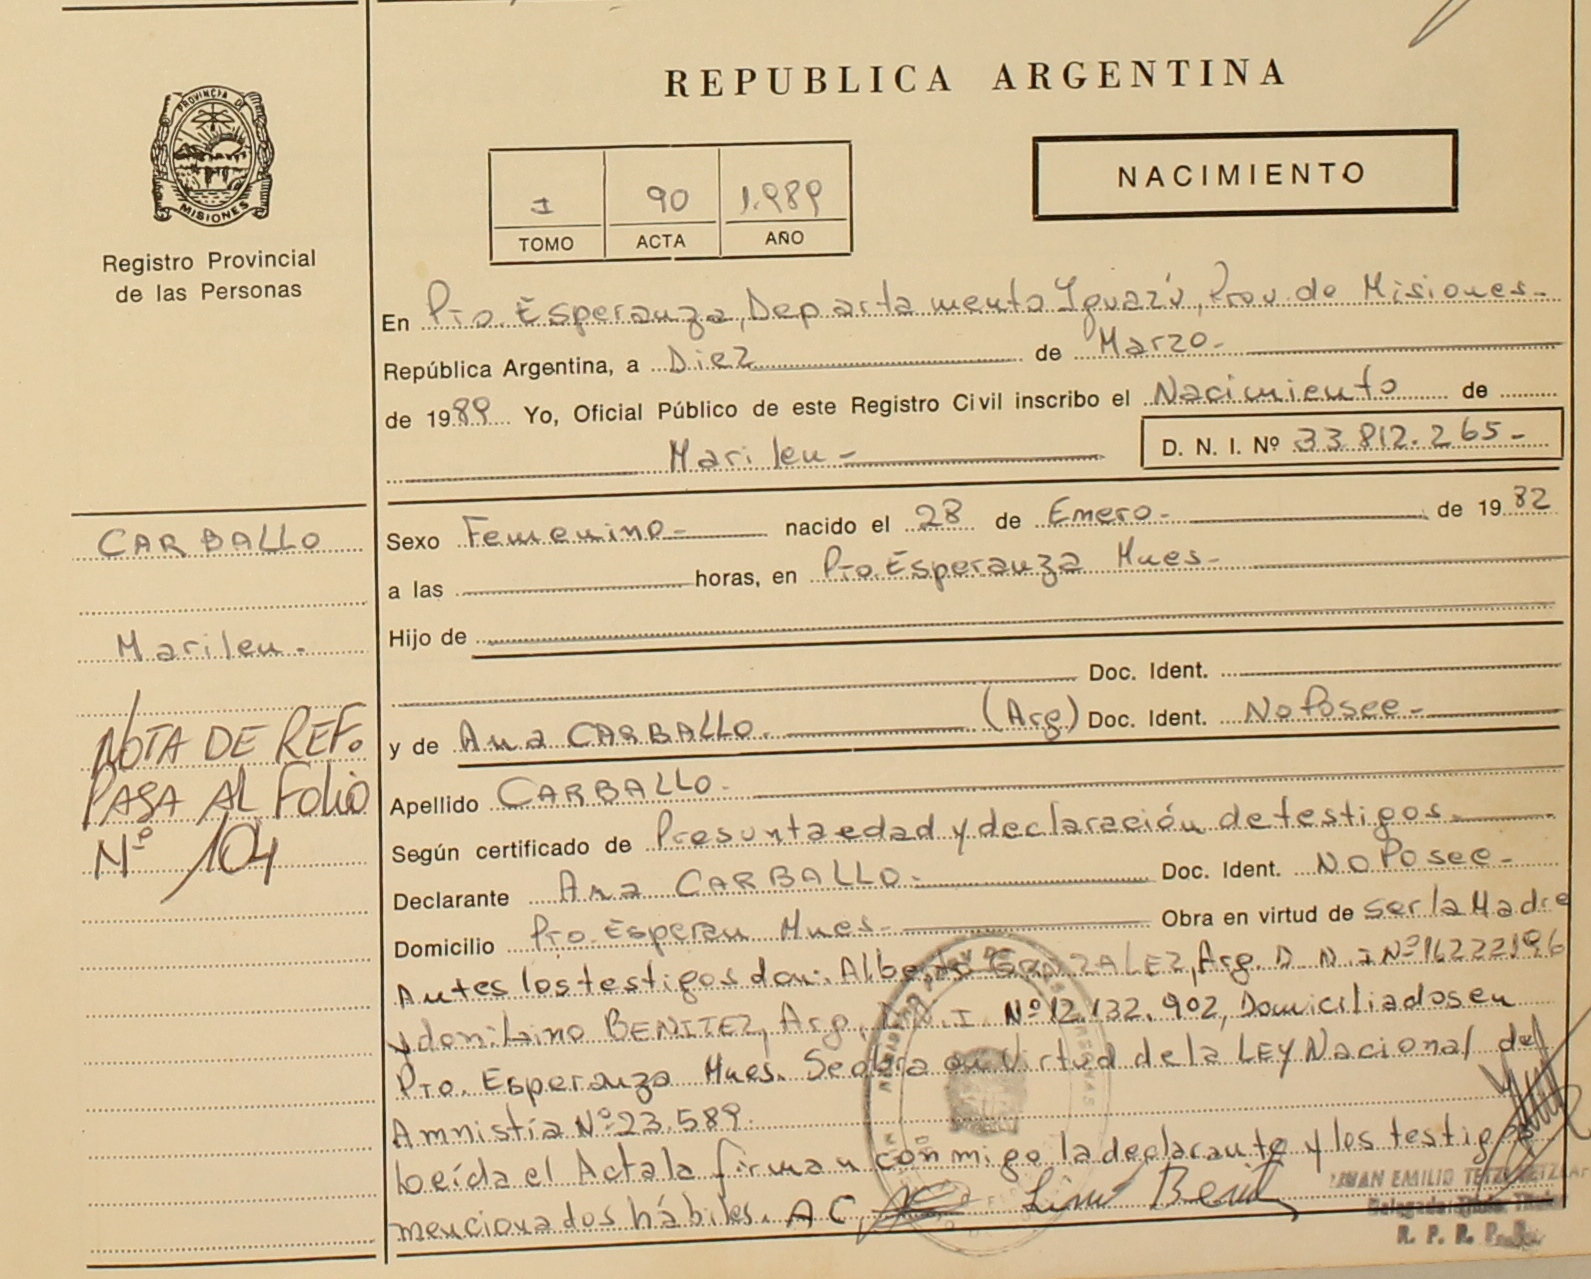 REPUBLICA ARGENTINA
PROVINCIA DE
MISIONES
Registro Provincial
de las Personas
I 90 1.989
TOMO ACTA AÑO
NACIMIENTO
En Pto. Esperanza, Departamento Iguazú, Prov. de Misiones-
República Argentina, a Diez de Marzo-
de 1989 Yo, Oficial Público de este Registro Civil inscribo el Nacimiento de
Marileu-
D. N. I. Nº 33 812.265-
CARBALLO
Marileu-
NOTA DE REF.
PASA AL FOLIO
Nº 104
Sexo Femenino- nacido el 28 de Enero- de 1982
a las horas, en Pto. Esperanza Mnes-
Hijo de
Doc. Ident.
y de Ana CARBALLO. (Arg) Doc. Ident. No Posee-
Apellido CARBALLO-
Según certificado de Presunta edad y declaración de testigos-
Declarante Ana CARBALLO- Doc. Ident. No Posee-
Domicilio Pto. Esperan Mnes- Obra en virtud de ser la Madre
Antes los testigos don: Alberto GONZALEZ, Arg. D N I Nº 16222196
y don: Lino BENITEZ, Arg, D.N.I. Nº 12.132.902, Domiciliados en
Pto. Esperanza Mnes. Se obra en Virtud de la LEY Nacional de
Amnistía Nº 23.589.
Leída el Acta la firman conmigo la declarante y los testigos
mencionados hábiles. A C, Lino Benit
JUAN EMILIO
R. P. R. P.